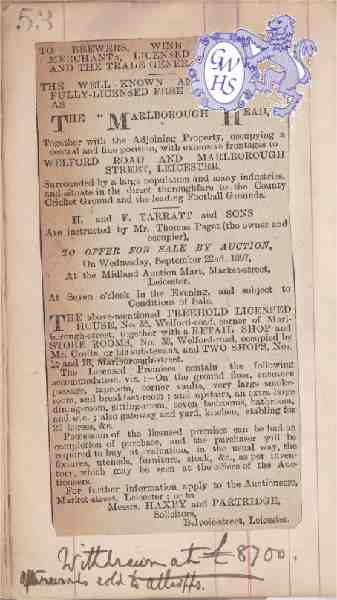 53
TO BREWERS, WINE
MERCHANTS, LICENSED
AND THE TRADE GENER
THE WELL-KNOWN AN
FULLY-LICENSED FREE
AS
GWHS
THE "MARLBOROUGH HEAD,"
Together with the Adjoining Property, occupying a
central and fine position, with extensive frontages to
WELFORD ROAD AND MARLBOROUGH
STREET, LEICESTER.
Surrounded by a large population and many industries,
and situate in the direct thoroughfare to the County
Cricket Ground and the leading Football Grounds.
H. and F. TARRATT and SONS
Are instructed by Mr. Thomas Paget (the owner and
occupier),
TO OFFER FOR SALE BY AUCTION,
On Wednesday, September 22nd, 1897,
At the Midland Auction Mart, Market-street,
Leicester,
At Seven o'clock in the Evening, and subject to
Conditions of Sale,
THE above-mentioned FREEHOLD LICENSED
HOUSE, No. Welford-road, corner of Marl-
borough-street, together with a RETAIL SHOP and
STORE ROOMS, No. Welford-road, occupied by
Mr. or his sub-tenant, and TWO SHOPS, Nos.
and Marlborough-street.
The Licensed Premises contain the following
accommodation, viz.:—On the ground floor, entrance
passage, taproom, corner vaults, very large smoke-
room, and breakfast-room; and upstairs, an extra large
dining-room, sitting-room, seven bedrooms, bathroom,
and w.c.; also gateway and yard, kitchen, stabling for
horses, &c.
Possession of the licensed premises can be had on
completion of purchase, and the purchaser will be
required to take at valuation, in the usual way, the
fixtures, utensils, furniture, stock, &c., as per inven-
tory, which may be seen at the offices of the Auc-
tioneers.
For further information apply to the Auctioneers,
Market-street, Leicester; or to
Messrs. HAXBY and PARTRIDGE,
Solicitors,
Belvoir-street, Leicester.
Withdrawn at £8700.
afterwards sold to